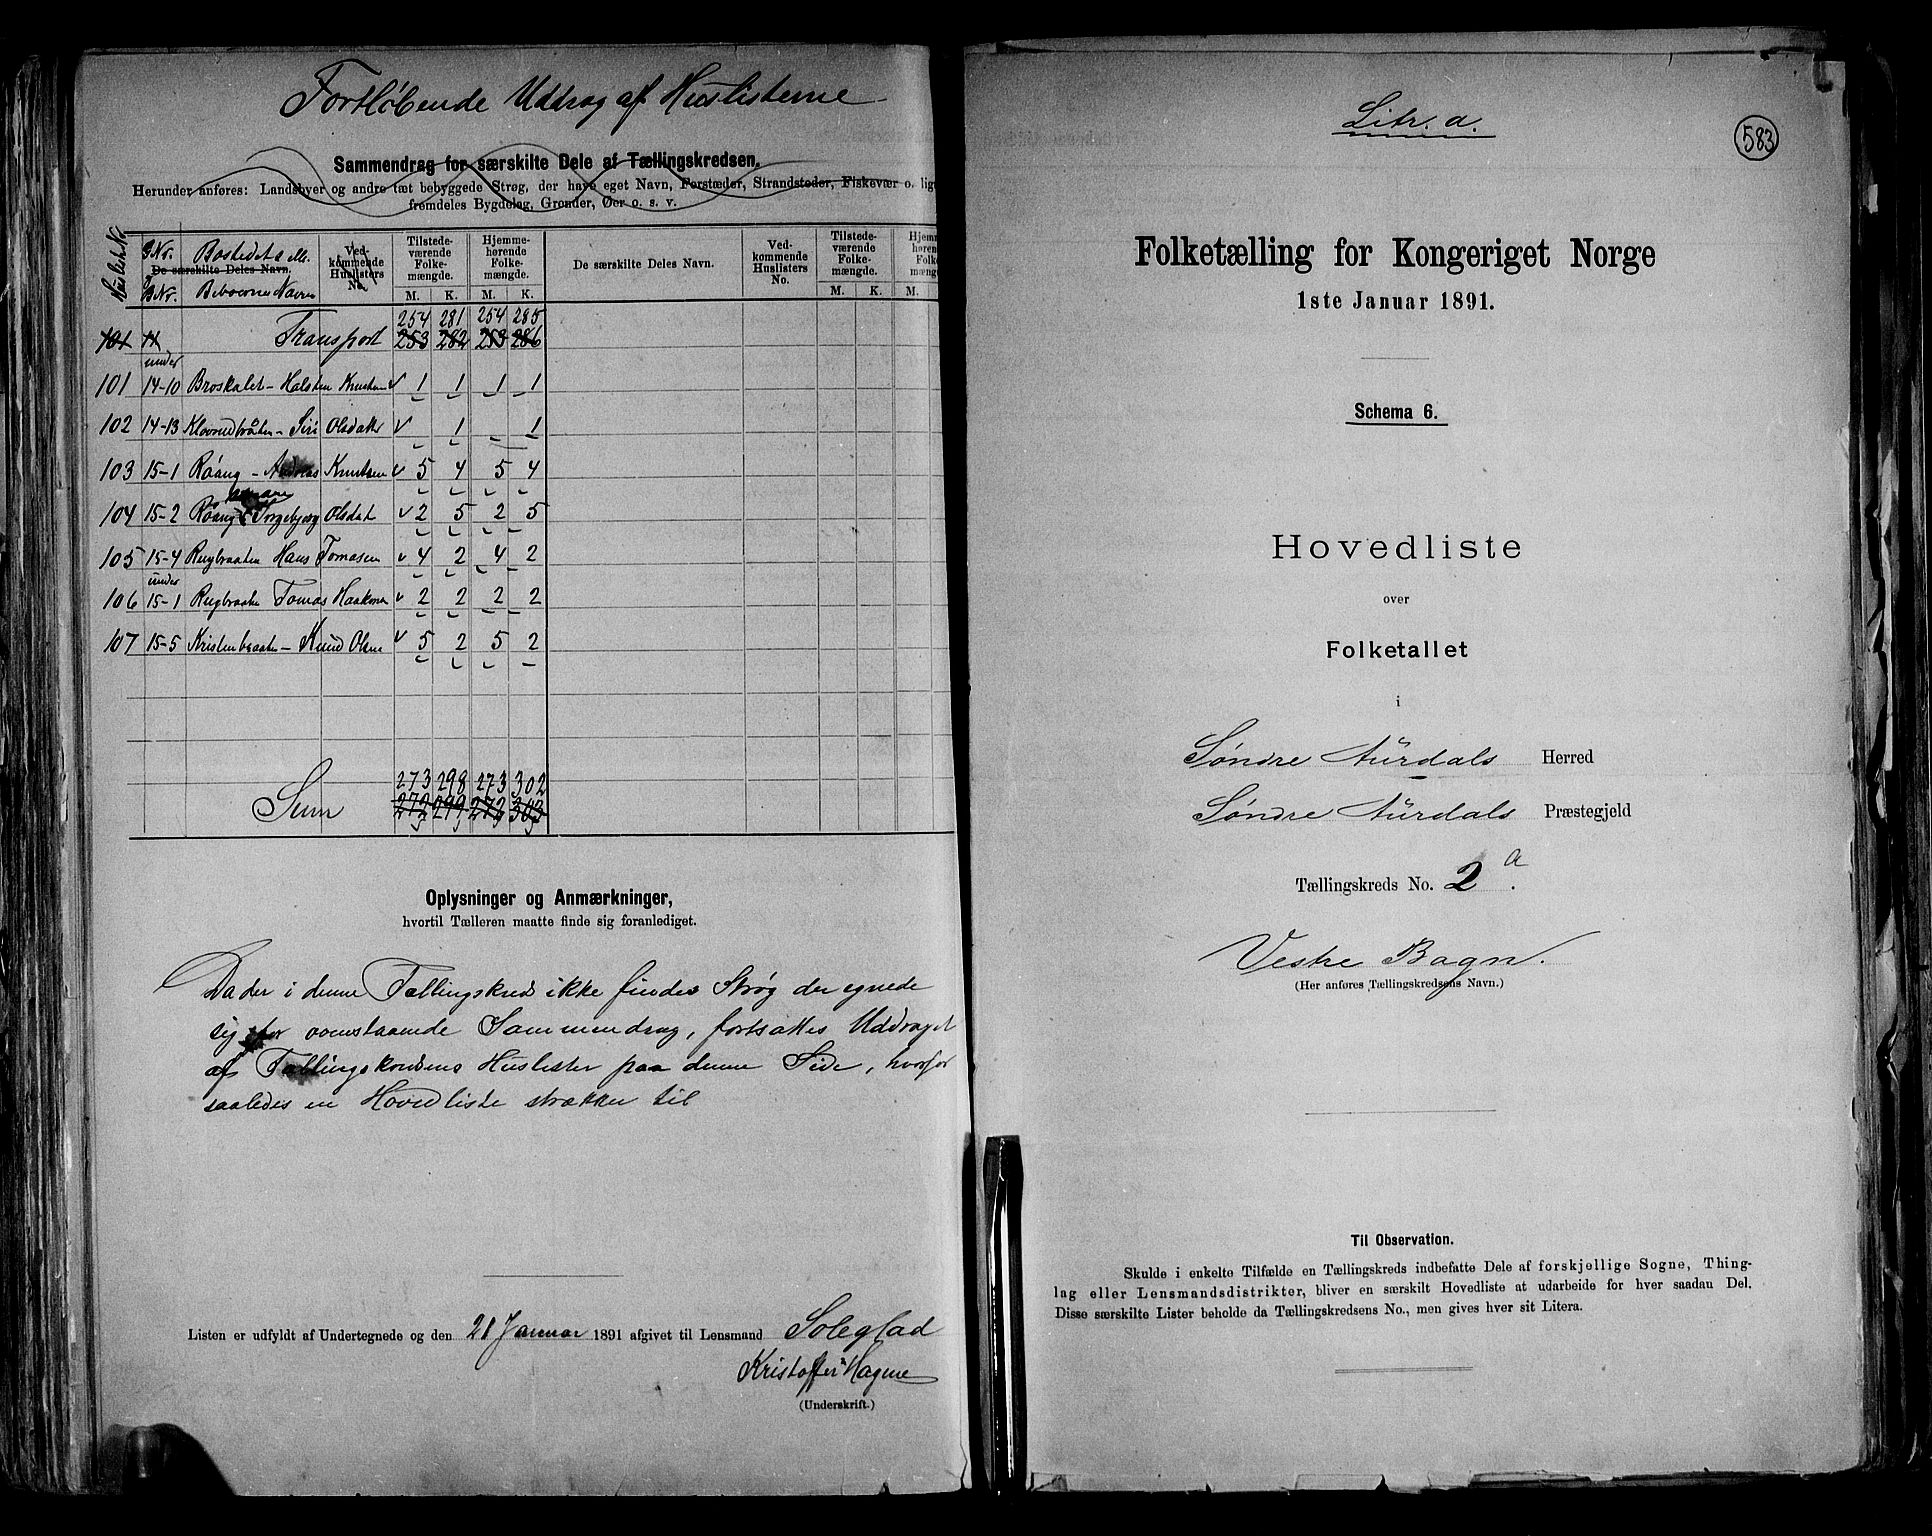 Fortløbende Uddrag af Huslisterne
Sammendrag for særskilte Dele af Tællingskredsen.
Herunder anføres: Landsbyer og andre tæt bebyggede Strøg, der have eget Navn, Forstæder, Strandsteder, Fiskevær o. lig
fremdeles Bygdelag, Grender, Øer o. s. v.
Husliste No. G.Nr. B.Nr. Bostedets ell. Beboerne Navn De særskilte Deles Navn. Ved-kommende Huslisters No. Tilstede-værende Folke-mængde. M. K. Hjemme-hørende Folke-mængde. M. K. De særskilte Deles Navn. Ved-kommende Huslisters No. Tilstede-værende Folke-mængde. M. K. Hjemm høren Folk mængd M.
254 281 254 285
101 11 Transport 253 282 253 286
under
101 14-10 Broskalet - Halsten Knutsen 1 1 1 1
102 14-13 Klovnedbråten - Siri Olsdatter 1 1
103 15-1 Røang - Andreas Knutsen 5 4 5 4
104 15-2 Røang Torgebjørg Olsdat 2 5 2 5
105 15-4 Rugbraaten Hans Tomasen 4 2 4 2
under
106 15-1 Rugbraate Tomas Haakonsen 2 2 2 2
107 15-5 Kristenbraaten - Knud Olsen 5 2 5 2
273 298 273 302
Sum 272 299 272 303
Oplysninger og Anmærkninger,
hvortil Tælleren maatte finde sig foranlediget.
Da der i denne Tællingskreds ikke findes Strøg der egnede
sig for ovenstaaende Sammendrag, fortsattes Uddraget
af Tællingskredsens Huslister paa denne Side, hvorfor
saaledes en Hovedliste strækker til
Listen er udfyldt af Undertegnede og den 21 Januar 1891 afgivet til Lensmand Soleglad
Kristoffer Hagene
(Underskrift.)
Litr. a.
583
Folketælling for Kongeriget Norge
1ste Januar 1891.
Schema 6.
Hovedliste
over
Folketallet
i
Søndre Aurdals Herred
Søndre Aurdals Præstegjeld
Tællingskreds No. 2 a.
Vestre Bagn.
(Her anføres Tællingskredsens Navn.)
Til Observation.
Skulde i enkelte Tilfælde en Tællingskreds indbefatte Dele af forskjellige Sogne, Thing-
lag eller Lensmandsdistrikter, bliver en særskilt Hovedliste at udarbeide for hver saadan Del.
Disse særskilte Lister beholde da Tællingskredsens No., men gives hver sit Litera.